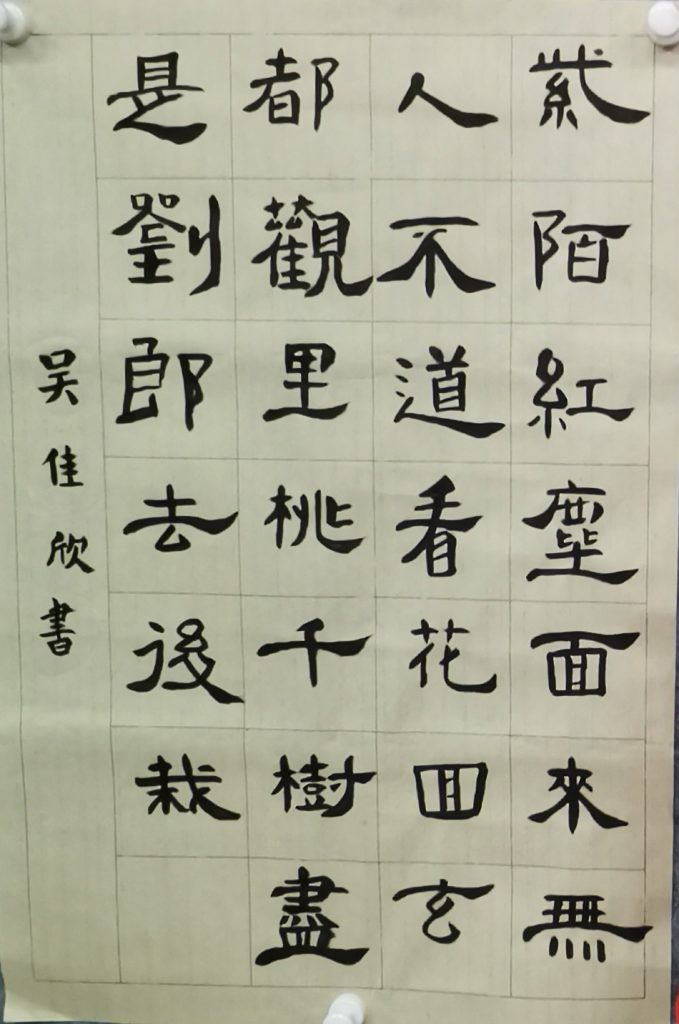 紫陌紅塵面來無
人不道看花回玄
都觀里桃千樹盡
是劉郎去後栽
吴佳欣書